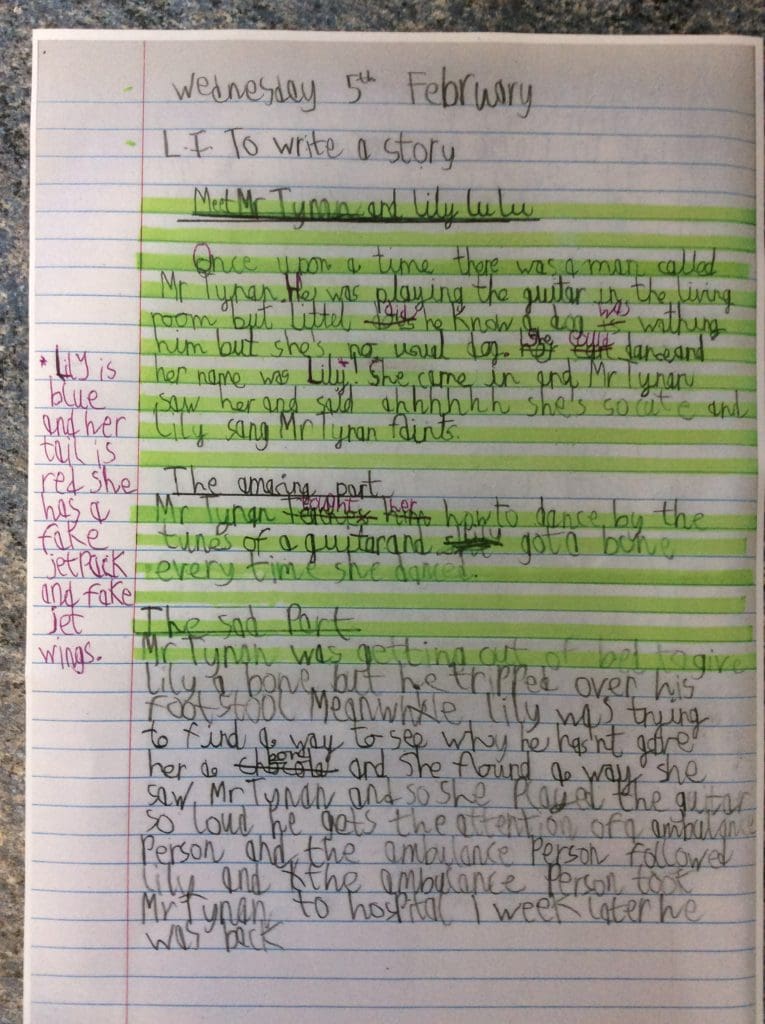 Wednesday 5th February
L.I. To write a story
Meet Mr Tynan and Lily lulu
Once upon a time there was a man called
Mr Tynan. He was playing the guitar in the living
room but littel did he know a dog was wathing
him but she's no usual dog. She could dance and
her name was Lily*! She came in and Mr Tynan
saw her and said ahhhhhh she's so cute and
Lily sang Mr Tynan faints.
* Lily is
blue
and her
tail is
red she
has a
fake
jetpack
and fake
jet
wings.
The amazing part
Mr Tynan taught her how to dance by the
tunes of a guitar and got a bone
every time she danced.
The sad Part
Mr Tynan was getting out of bed to give
Lily a bone but he tripped over his
footstool Meanwhale Lily was trying
to find a way to see why he hasn't gave
her a bone and She flound a way she
saw Mr Tynan and so she Played the guitar
so loud he gets the attention of a ambulance
Person and the ambulance Person followed
Lily and the ambulance Person toot
Mr Tynan to hospital 1 week later he
was back